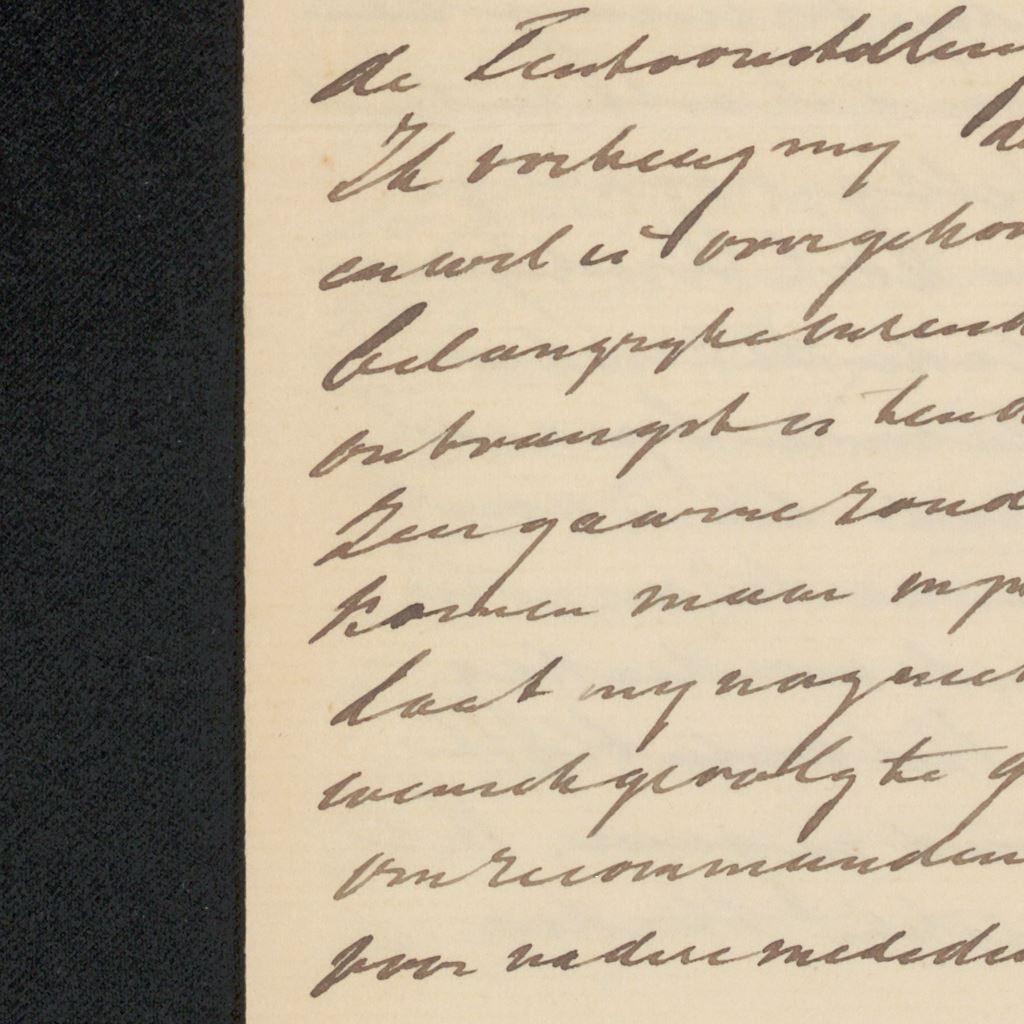 de Tentoonstelling
Ik verheug my de
en wel is overgekom
belangryke
ontvangst is
Zeer gaarne zoud
komen maar
laat my nog niet
wensch gevolg te g
om recommanden
voor nadere mededee